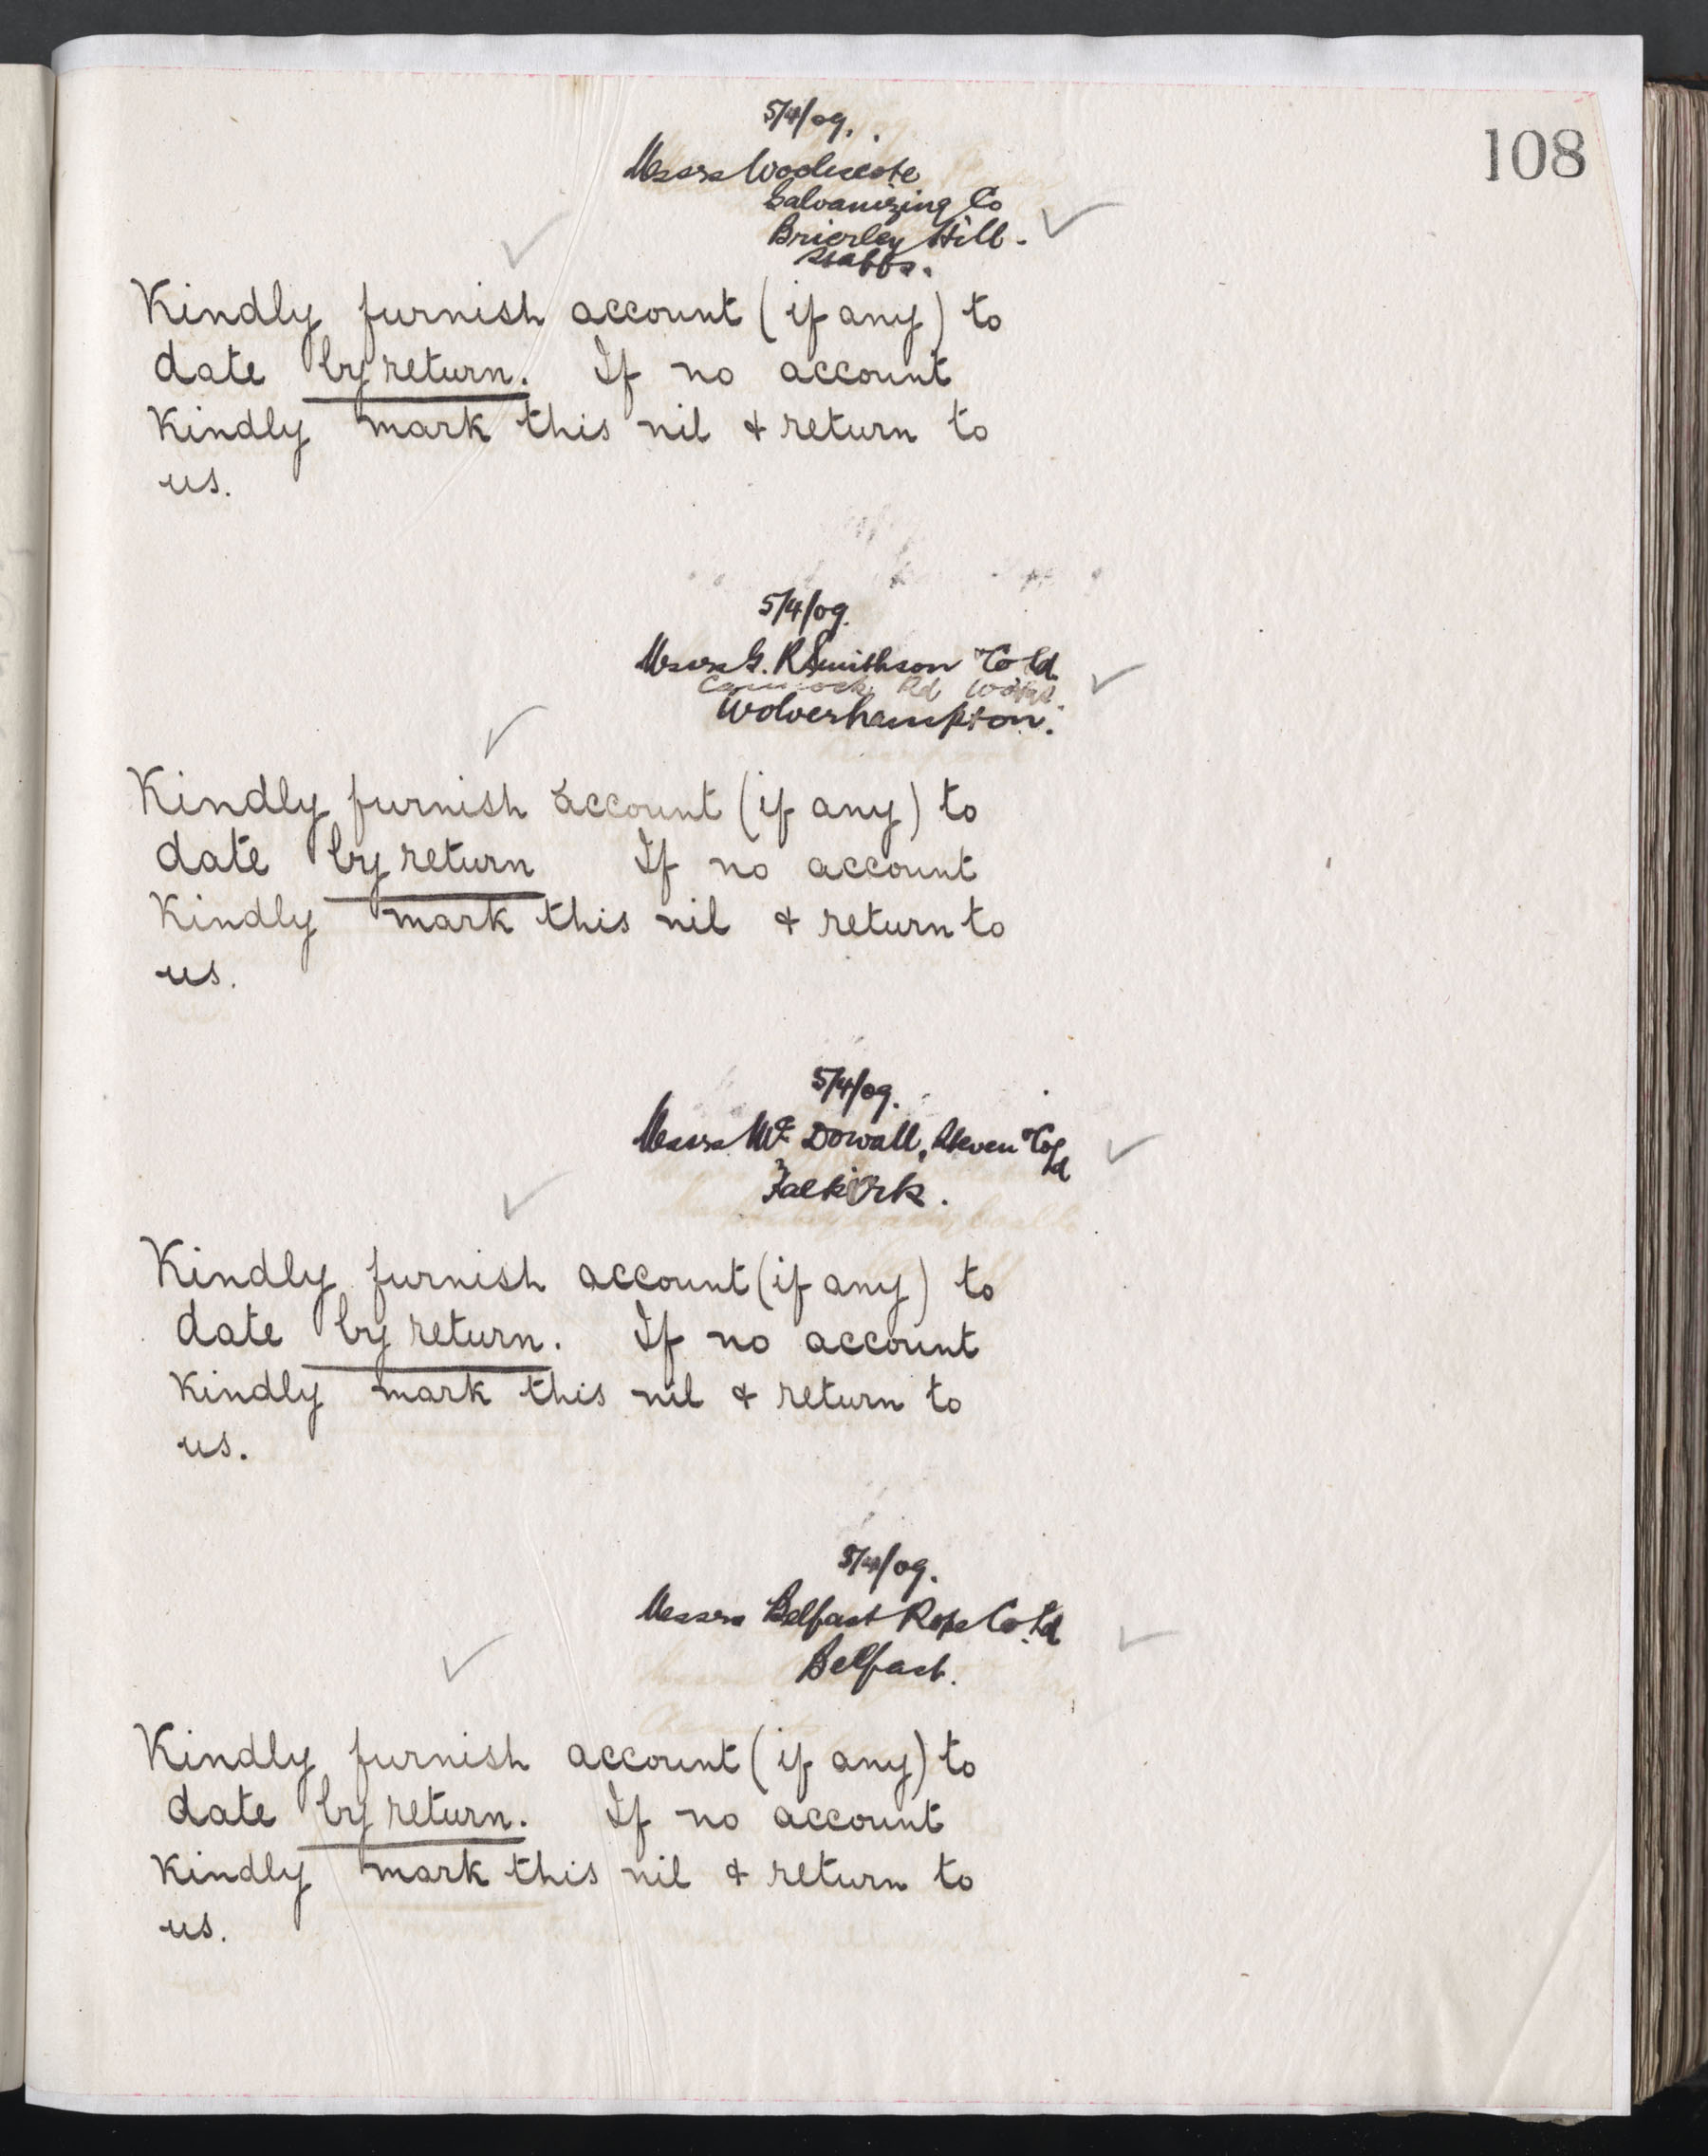 108
5/4/09.
Messrs Woodcote
Galvanizing Co
Brierley Hill.
Staffs.
Kindly furnish account (if any) to
date by return. If no account
Kindly mark this nil & return to
us.
5/4/09.
Messrs G. R Smithson & Co Ld.
Cannock Rd Works.
Wolverhampton.
Kindly furnish account (if any) to
date by return If no account
Kindly mark this nil & return to
us.
5/4/09.
Messrs Mc Dowall, Steven & Co
Ld
Falkirk.
Kindly furnish account (if any) to
date by return. If no account
Kindly mark this nil & return to
us.
5/4/09.
Messrs Belfast Rope Co. Ld
Belfast.
Kindly furnish account (if any) to
date by return. If no account
Kindly mark this nil & return to
us.